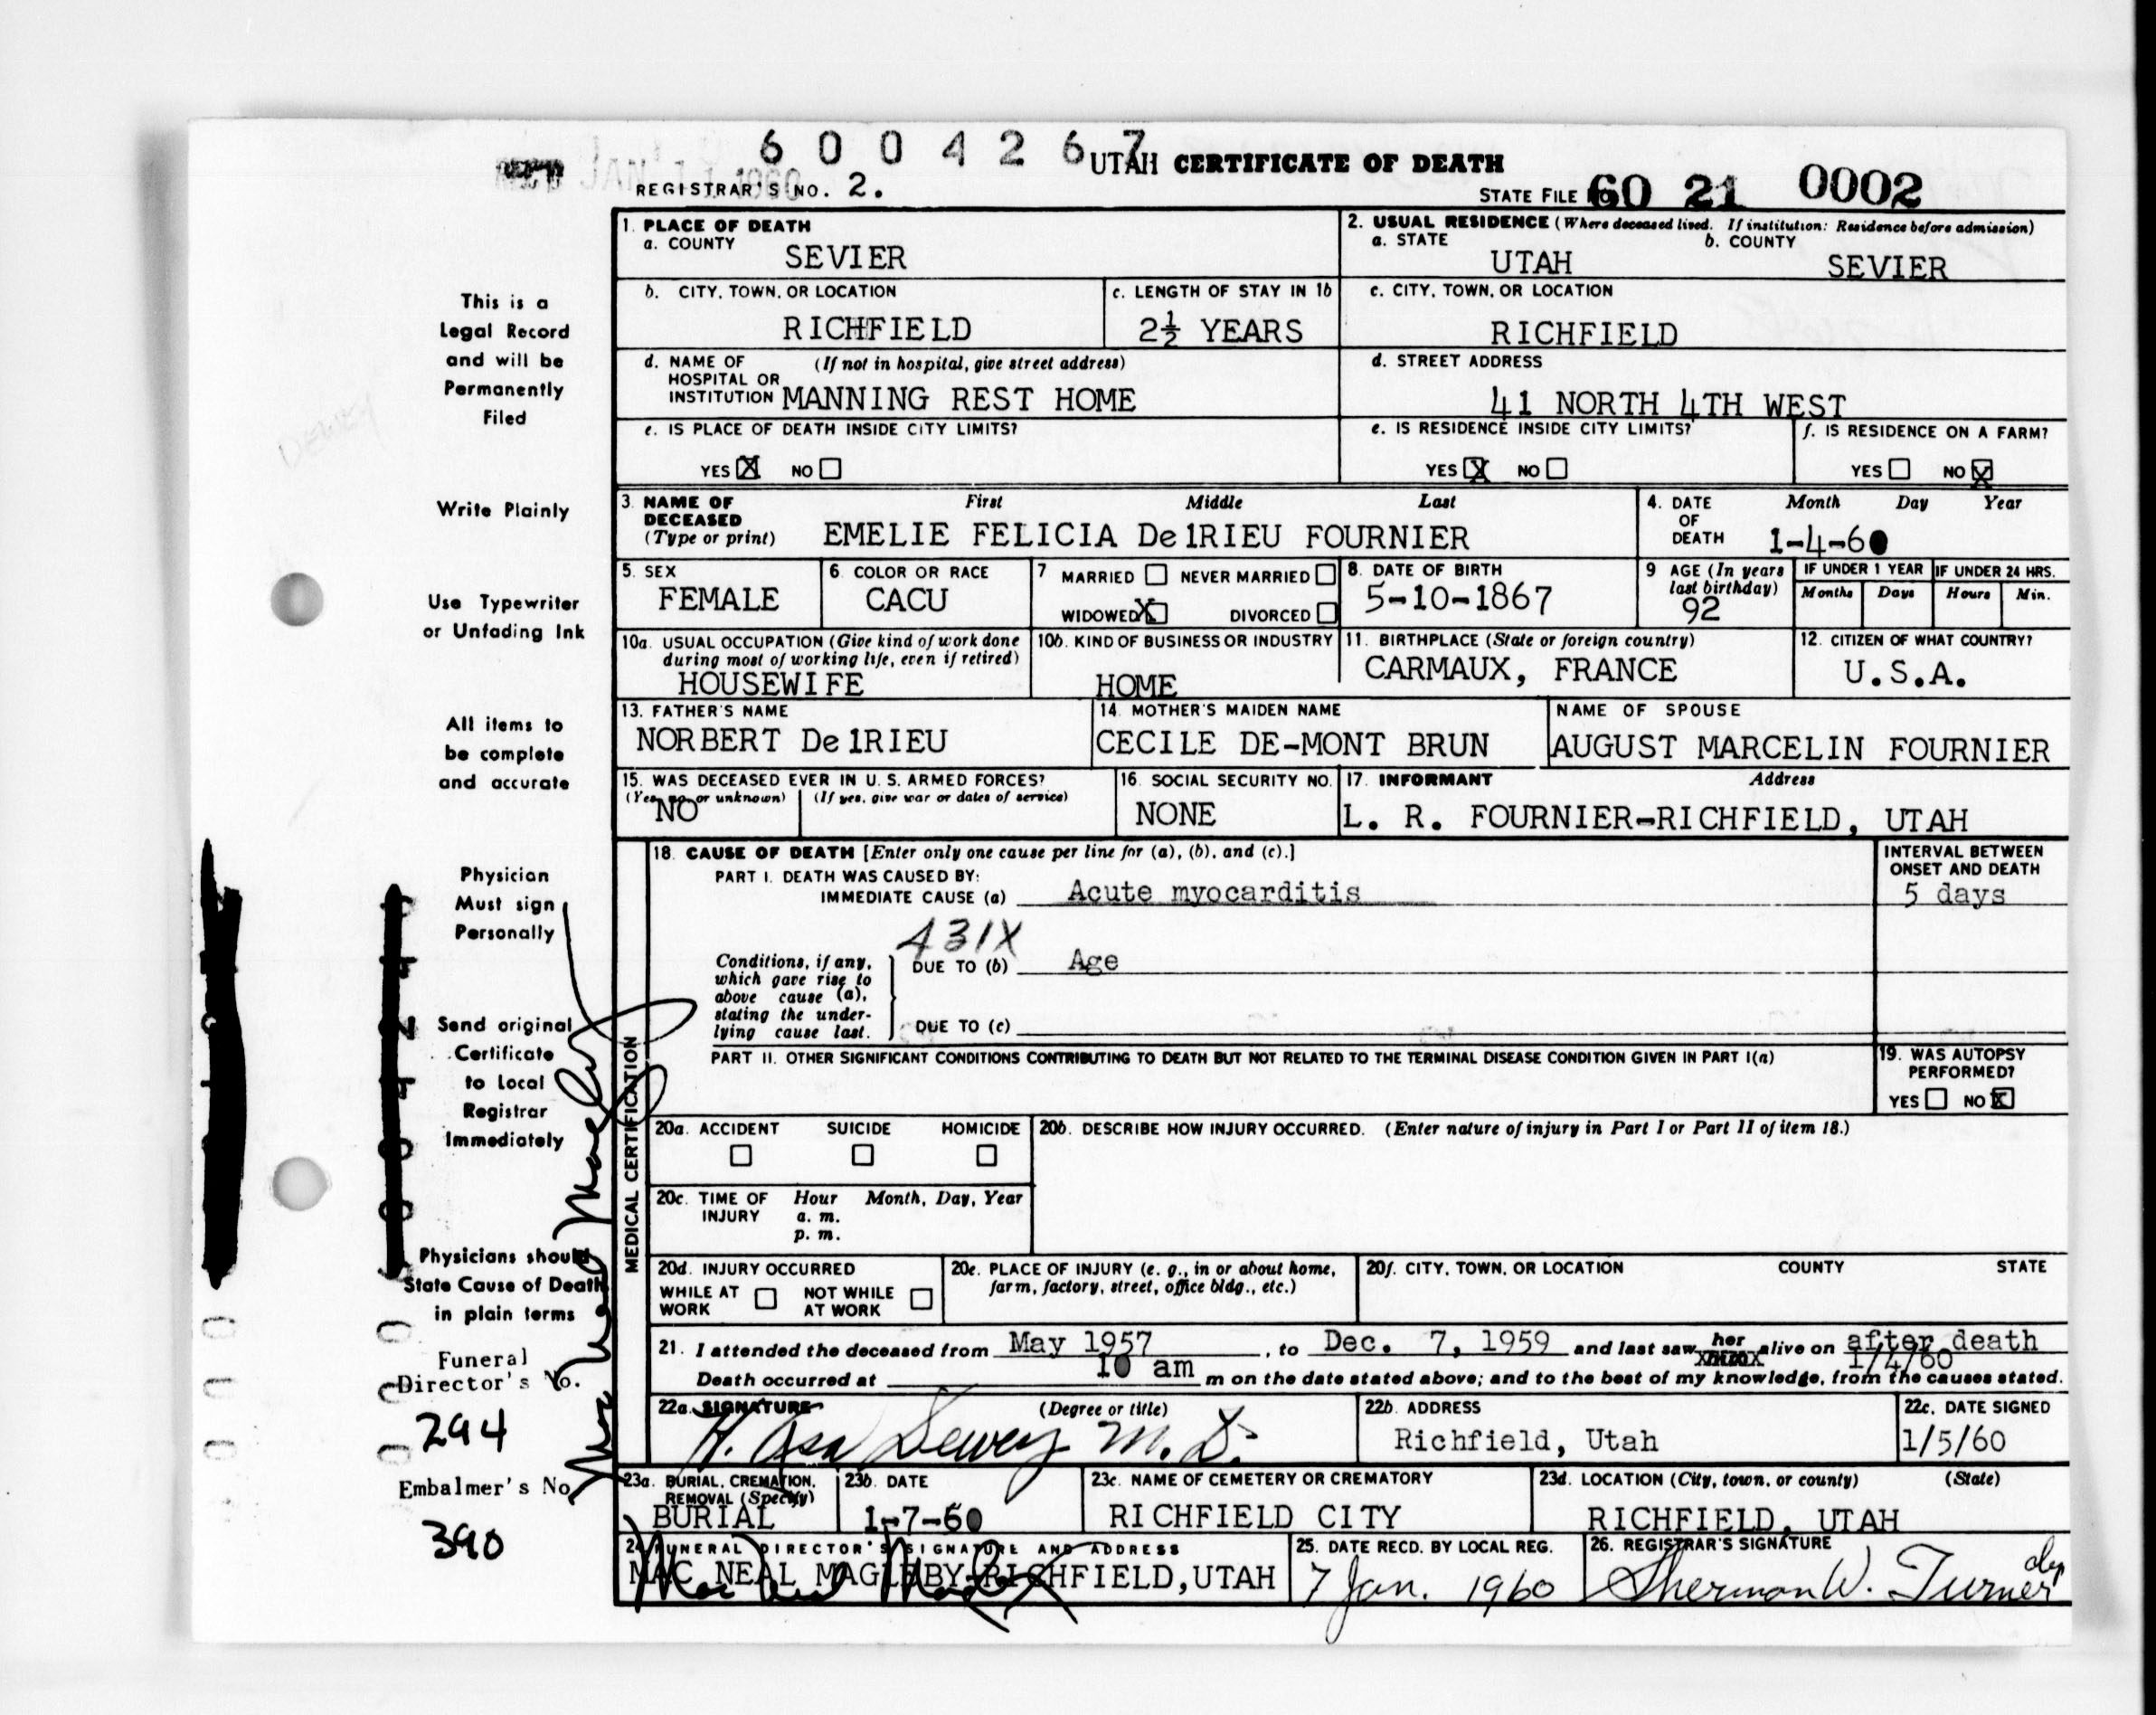 6 0 0 4 2 6 7
UTAH CERTIFICATE OF DEATH
REGISTRAR'S NO. 2.
STATE FILE 60 21 0002
1. PLACE OF DEATH
a. COUNTY SEVIER
2. USUAL RESIDENCE (Where deceased lived. If institution: Residence before admission)
a. STATE UTAH b. COUNTY SEVIER
b. CITY, TOWN, OR LOCATION RICHFIELD
c. LENGTH OF STAY IN 1b 2½ YEARS
c. CITY, TOWN, OR LOCATION RICHFIELD
d. NAME OF HOSPITAL OR INSTITUTION (If not in hospital, give street address) MANNING REST HOME
d. STREET ADDRESS 41 NORTH 4TH WEST
e. IS PLACE OF DEATH INSIDE CITY LIMITS? YES X NO
e. IS RESIDENCE INSIDE CITY LIMITS? YES X NO
f. IS RESIDENCE ON A FARM? YES NO X
3. NAME OF DECEASED (Type or print) First Middle Last
EMELIE FELICIA De lRIEU FOURNIER
4. DATE OF DEATH Month Day Year
1-4-60
5. SEX FEMALE
6. COLOR OR RACE CACU
7 MARRIED NEVER MARRIED
WIDOWED X DIVORCED
8. DATE OF BIRTH 5-10-1867
9 AGE (In years last birthday) 92
IF UNDER 1 YEAR Months Days
IF UNDER 24 HRS. Hours Min.
10a. USUAL OCCUPATION (Give kind of work done during most of working life, even if retired)
HOUSEWIFE
10b. KIND OF BUSINESS OR INDUSTRY
HOME
11. BIRTHPLACE (State or foreign country)
CARMAUX, FRANCE
12. CITIZEN OF WHAT COUNTRY?
U.S.A.
13. FATHER'S NAME
NORBERT De lRIEU
14. MOTHER'S MAIDEN NAME
CECILE DE-MONT BRUN
NAME OF SPOUSE
AUGUST MARCELIN FOURNIER
15. WAS DECEASED EVER IN U.S. ARMED FORCES?
(Yes, no, or unknown) (If yes, give war or dates of service)
NO
16. SOCIAL SECURITY NO.
NONE
17. INFORMANT Address
L. R. FOURNIER-RICHFIELD, UTAH
18. CAUSE OF DEATH [Enter only one cause per line for (a), (b), and (c).]
PART I. DEATH WAS CAUSED BY:
IMMEDIATE CAUSE (a) Acute myocarditis
INTERVAL BETWEEN ONSET AND DEATH
5 days
431X
Conditions, if any, which gave rise to above cause (a), stating the underlying cause last.
DUE TO (b) Age
DUE TO (c)
PART II. OTHER SIGNIFICANT CONDITIONS CONTRIBUTING TO DEATH BUT NOT RELATED TO THE TERMINAL DISEASE CONDITION GIVEN IN PART I(a)
19. WAS AUTOPSY PERFORMED?
YES NO X
MEDICAL CERTIFICATION
20a. ACCIDENT SUICIDE HOMICIDE
20b. DESCRIBE HOW INJURY OCCURRED. (Enter nature of injury in Part I or Part II of item 18.)
20c. TIME OF INJURY Hour Month, Day, Year
a. m.
p. m.
20d. INJURY OCCURRED
WHILE AT WORK NOT WHILE AT WORK
20e. PLACE OF INJURY (e. g., in or about home, farm, factory, street, office bldg., etc.)
20f. CITY, TOWN, OR LOCATION COUNTY STATE
21. I attended the deceased from May 1957, to Dec. 7, 1959 and last saw her alive on after death 1/4/60
Death occurred at 10 am m on the date stated above; and to the best of my knowledge, from the causes stated.
22a. SIGNATURE (Degree or title)
H. Asa Dewey M.D.
22b. ADDRESS
Richfield, Utah
22c. DATE SIGNED
1/5/60
23a. BURIAL, CREMATION, REMOVAL (Specify)
BURIAL
23b. DATE
1-7-60
23c. NAME OF CEMETERY OR CREMATORY
RICHFIELD CITY
23d. LOCATION (City, town, or county) (State)
RICHFIELD, UTAH
24. FUNERAL DIRECTOR'S SIGNATURE AND ADDRESS
MAC NEAL MAGLEBY-RICHFIELD,UTAH
25. DATE RECD. BY LOCAL REG.
7 Jan. 1960
26. REGISTRAR'S SIGNATURE
Sherman W. Turner dep
This is a
Legal Record
and will be
Permanently
Filed
DEWEY
Write Plainly
Use Typewriter
or Unfading Ink
All items to
be complete
and accurate
Physician
Must sign
Personally
Send original
Certificate
to Local
Registrar
Immediately
Physicians should
State Cause of Death
in plain terms
Funeral
Director's No.
294
Embalmer's No
390